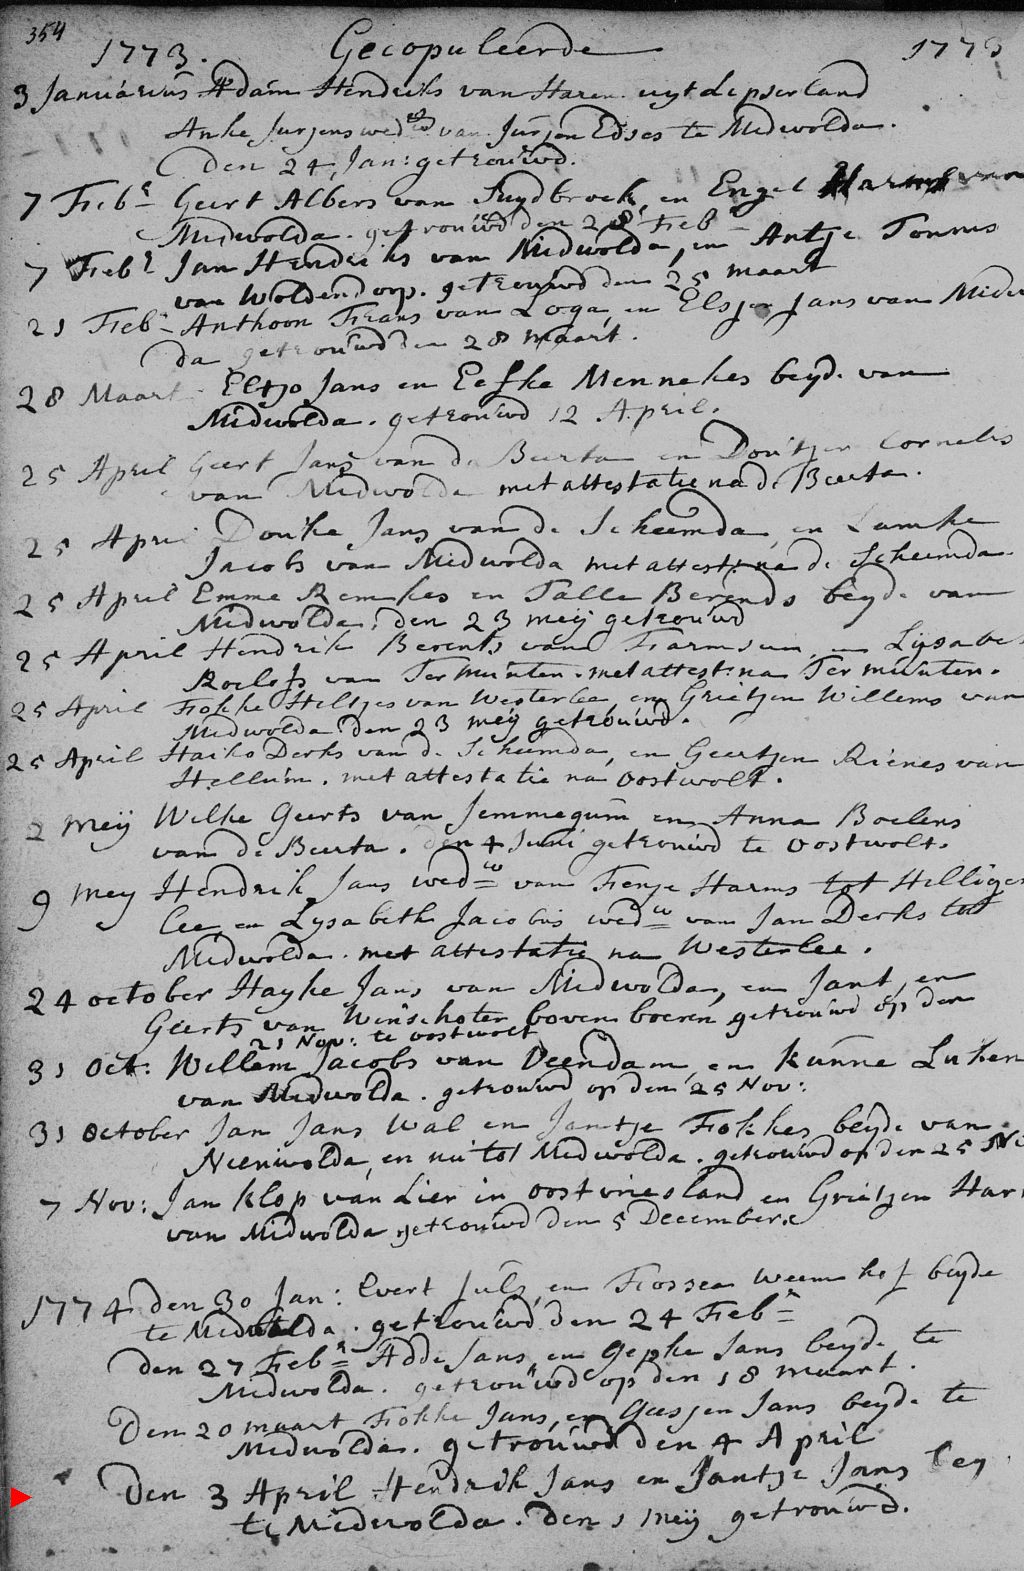 354
1773. Gecopuleerde 1773
3 Januarius Adam Hendriks van Haren uyt lipserland
Anke Jurjens wed van Jurjen Edses te Midwolda.
den 24 Jan: getrouwd.
7 Febr Geert Albers van Suydbroek, en Engel Harms van
Midwolda. getrouwd den 28 Feb
7 Febr Jan Hendriks van Midwolda, en Antje Tonnis
van Woldendorp. getrouwd den 25 maart
21 Feb Anthoon Frans van Loga, en Elsjen Jans van Midw
da getrouwd den 28 maart.
28 Maart Eltjo Jans en Eefke Mennekes beyde van
Midwolda. getrouwd 12 April.
25 April Geert Jans van de Beerta en Doutjen Cornelis
van Midwolda met attestatie na de Beerta.
25 Apri Douke Jans van de Scheemda, en Lamke
Jacobs van Midwolda met attest: na de Scheemda.
25 April Emme Remkes en Talle Berends beyde van
Midwolda. den 23 meij getrouwd
25 April Hendrik Berents van Farmsum, en Lysabe
Roelofs van Termunten. met attest: na Termunten.
25 April Fokke Hiltjes van Westerlee en Grietjen Willems van
Midwolda den 23 meij getrouwd.
25 April Haiko Derks van de Scheemda, en Geertjen Rienes van
Hellum. met attestatie na Oostwolt.
2 Meij Wilke Geerts van Jemmegum en Anna Boelens
van de Beerta. den 4 Juni getrouwd te Oostwolt.
9 mey Hendrik Jans wed van Fenje Harms tot Hilliger
lee, en Lysabeth Jacobus wed van Jan Derks tot
Midwolda. met attestatie na Westerlee.
24 october Hayke Jans van Midwolda, en Jant en
Geerts van Winschoter boven boeren getrouwd op den
21 Nov: te oostwolt
31 Oct: Willem Jacobs van Veendam, en Kunne Luken
van Midwolda. getrouwd op den 25 Nov:
31 October Jan Jans Wal en Jantje Fokkes beyde van
Nieuwolda, en nu tot Midwolda. getrouwd op den 25 N
7 Nov: Jan Klop van Lier in oostvriesland en Grietjen Har
van Midwolda getrouwd den 5 December.
1774 den 30 Jan: Evert Juls, en Fossea Weemhof beyde
te Midwolda. getrouwd den 24 Feb
den 27 Febr Adde Jans, en Gepke Jans beyde te
Midwolda. getrouwd op den 18 maart.
Den 20 maart Fokke Jans, en Geesjen Jans beyde te
Midwolda. getrouwd den 4 April
Den 3 April Hendrik Jans en Jantje Jans bey
te Midwolda. den 1 meij getrouwd.